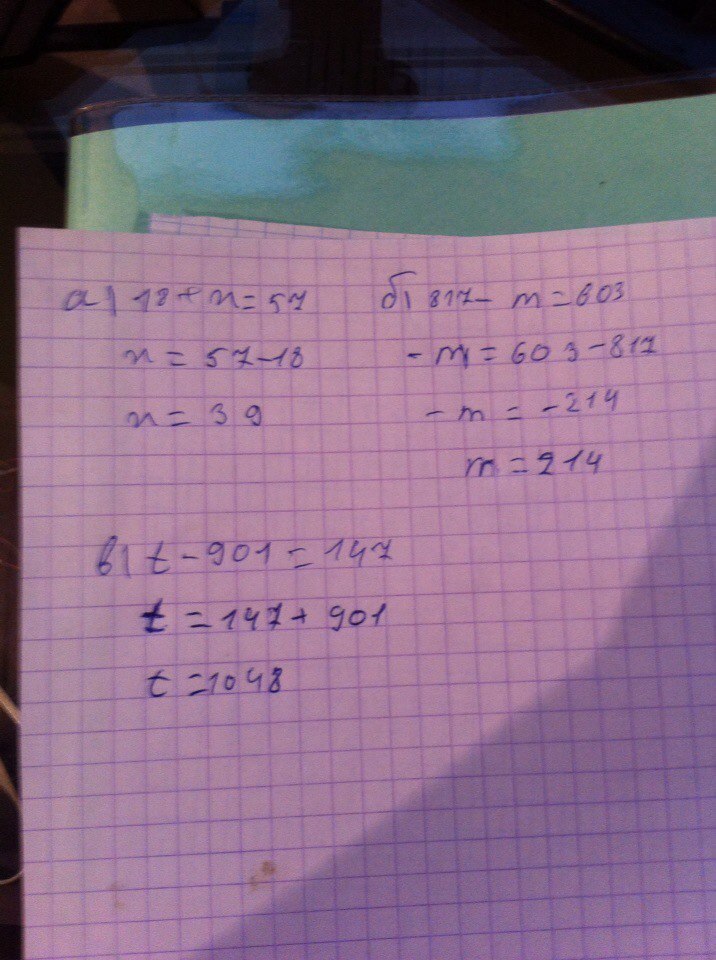 а) 18 + n = 57
n = 57 - 18
n = 39
б) 817 - m = 603
- m = 603 - 817
- m = - 214
m = 214
в) t - 901 = 147
t = 147 + 901
t = 1048